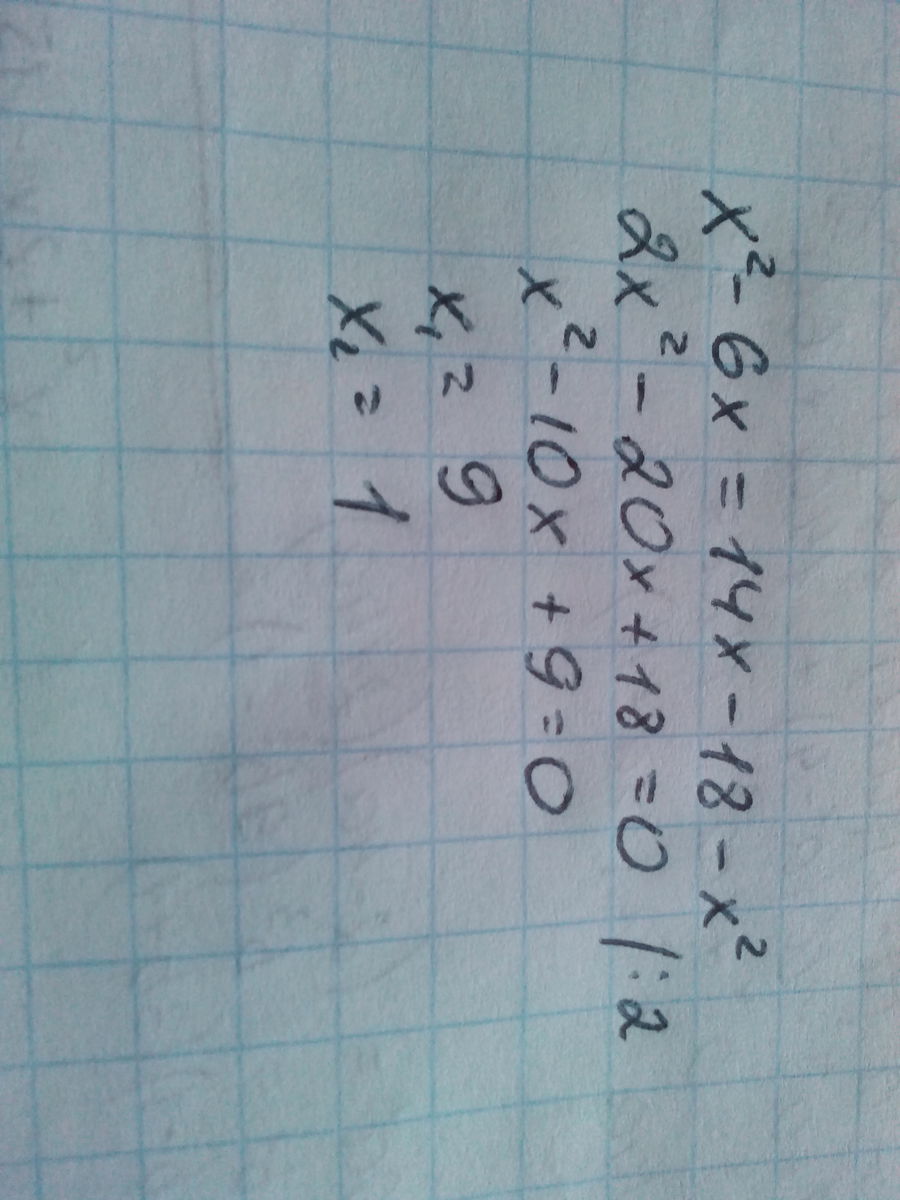 x² - 6x = 14x - 18 - x²
2x² - 20x + 18 = 0 /:2
x² - 10x + 9 = 0
x₁ = 9
x₂ = 1